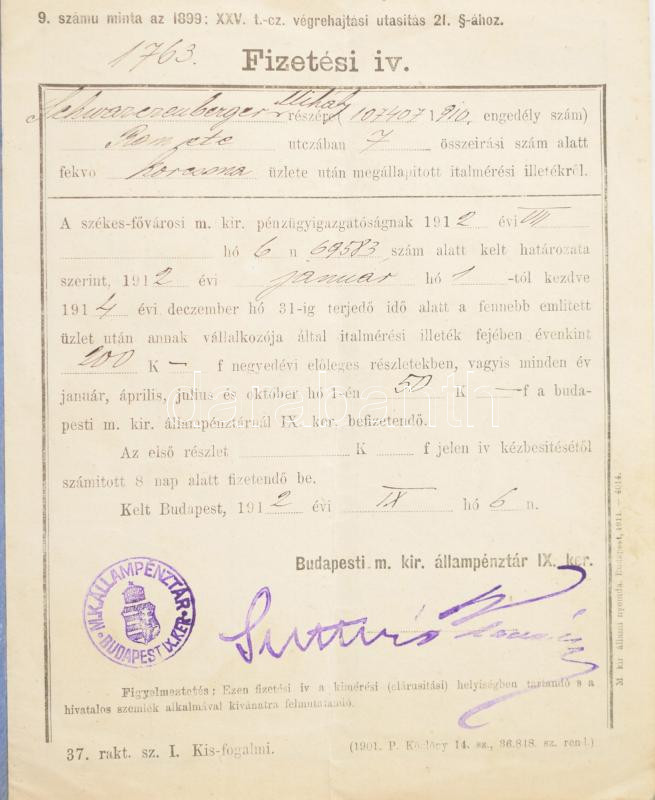 9. számu minta az 1899: XXV. t.-cz. végrehajtási utasitás 21. §-ához.
1763.
Fizetési iv.
Schwarczenberger Mihály részére (107407 1910. engedély szám)
utczában 7 összeirási szám alatt
fekvő korcsma üzlete után megállapitott italmérési illetékről.
A székes-fővárosi m. kir. pénzügyigazgatóságnak 1912 évi VIII
hó 6 n 69583 szám alatt kelt határozata
szerint, 1912 évi január hó 1 -től kezdve
1914 évi deczember hó 31-ig terjedő idő alatt a fennebb emlitett
üzlet után annak vállalkozója által italmérési illeték fejében évenkint
200 K — f negyedévi előleges részletekben, vagyis minden év
január, április, julius és október hó 1-én 50 K — f a buda-
pesti m. kir. állampénztárnál IX. ker. befizetendő.
Az első részlet K f jelen iv kézbesitésétől
számitott 8 nap alatt fizetendő be.
Kelt Budapest, 1912 évi IX hó 6 n.
Budapesti m. kir. állampénztár IX. ker.
M.K. ÁLLAMPÉNZTÁR
BUDAPEST IX. KER.
Figyelmeztetés: Ezen fizetési iv a kimérési (elárusitási) helyiségben tartandó s a
hivatalos szemlék alkalmával kivánatra felmutatandó.
37. rakt. sz. I. Kis-fogalmi.
(1901. P. Közlöny 14. sz., 36.848. sz. rend.)
M. kir. állami nyomda. Budapest, 1911. — 4014.
darabanth